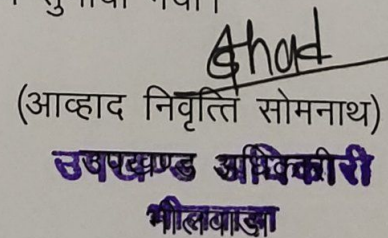 सुनाया गया।
(आव्हाद निवृत्ति सोमनाथ)
उपखण्ड अधिकारी
भीलवाडा